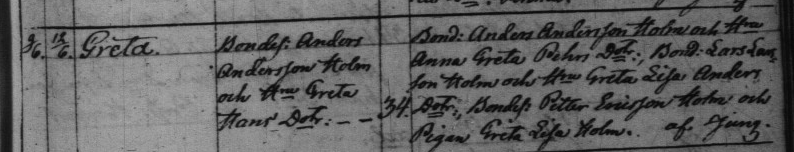 9/6. 12/6. Greta.
Bondes: Anders
Andersson Holm
och Hru Greta
Hans Dotr: - - 34.
Bond: Anders Andersson Holm och Hru
Anna Greta Pehrs Dotr:, Bond: Lars Lars
son Holm och Hru Greta Lisa Anders
Dotr:, Bondes: Petter Ericsson Holm och
Pigan Greta Lisa Holm. af Ljung.